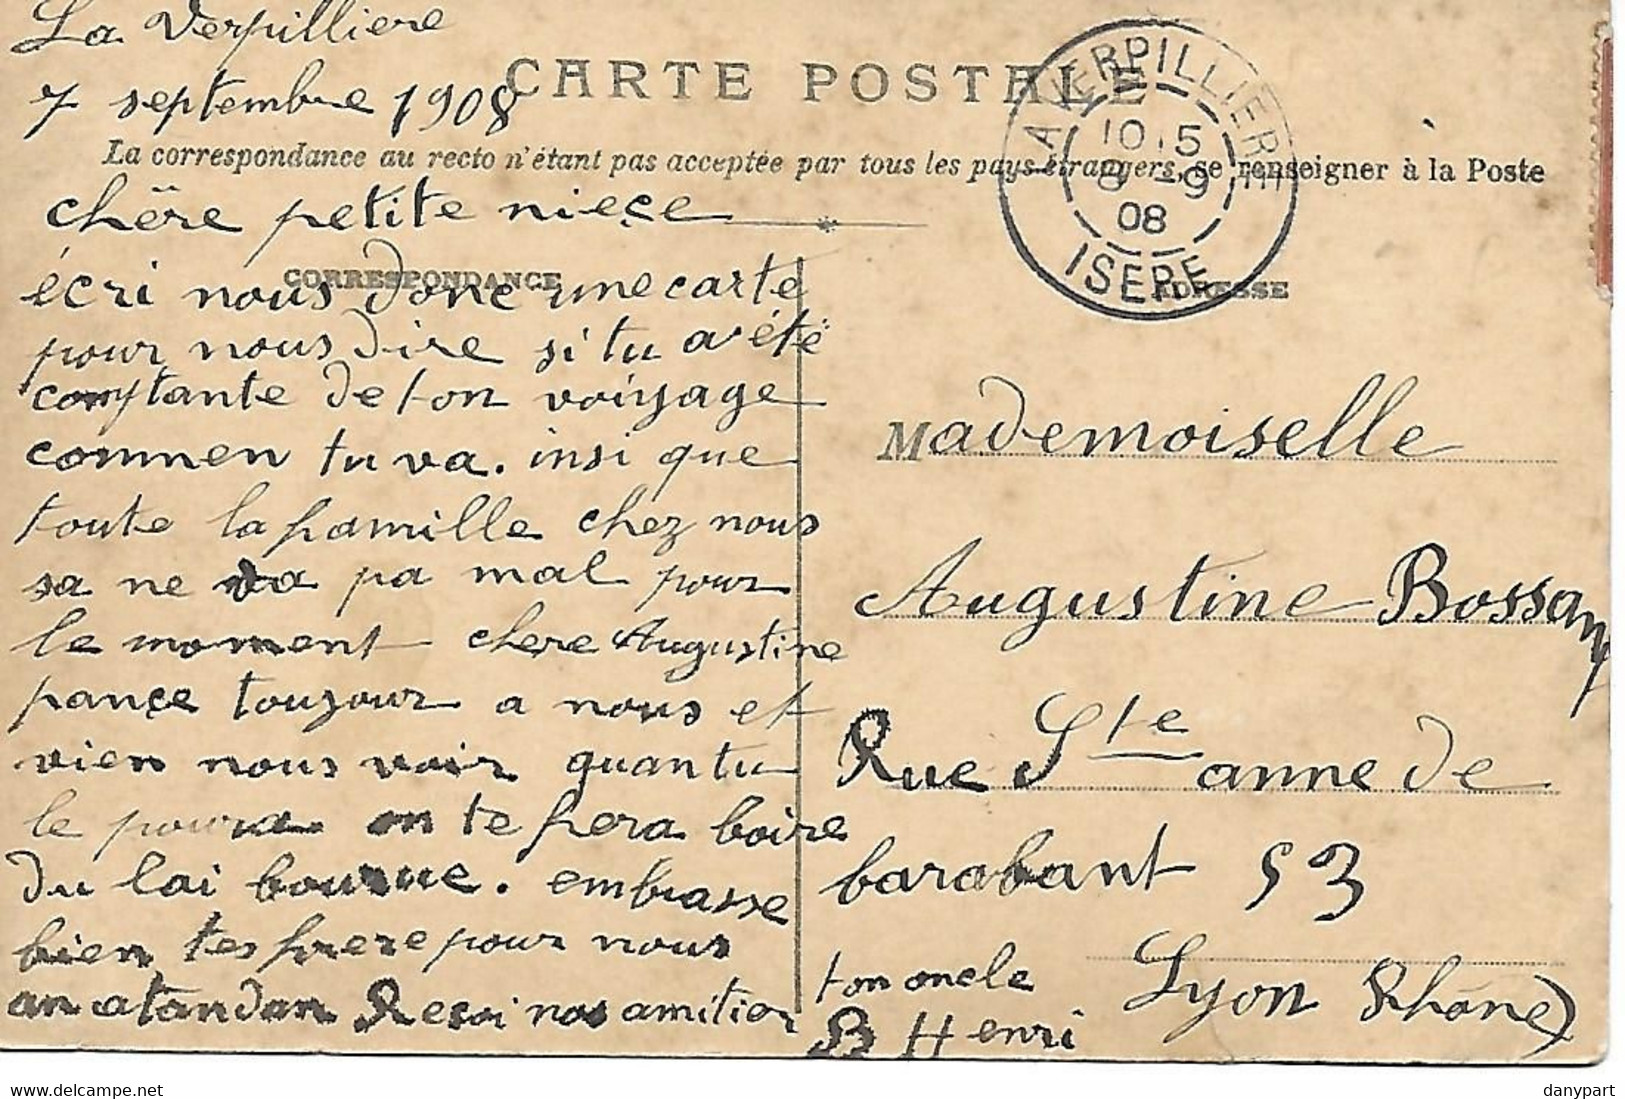 La Verpilliere
7 septembre 1908
CARTE POSTALE
La correspondance au recto n'étant pas acceptée par tous les pays étrangers, se renseigner à la Poste
LA VERPILLIERE
10.5
8 -9
08
ISERE
chère petite nieçe
CORRESPONDANCE
ADRESSE
écri nous donc une carte
pour nous dire si tu a été
comptante de ton voiyage
commen tu va. insi que
toute la pamille chez nous
sa ne va pa mal pour
le moment chere Augustine
pançe toujour a nous et
vien nous voir quan tu
le poura on te fera boire
du lai bourue. embrasse
bien tes frere pour nous
an atandan Resoi nos amitier
ton oncle
B Henri
Mademoiselle
Augustine Bossany
Rue Ste anne de
barabant 53
Lyon Rhône)
Delcampe.net
danypart